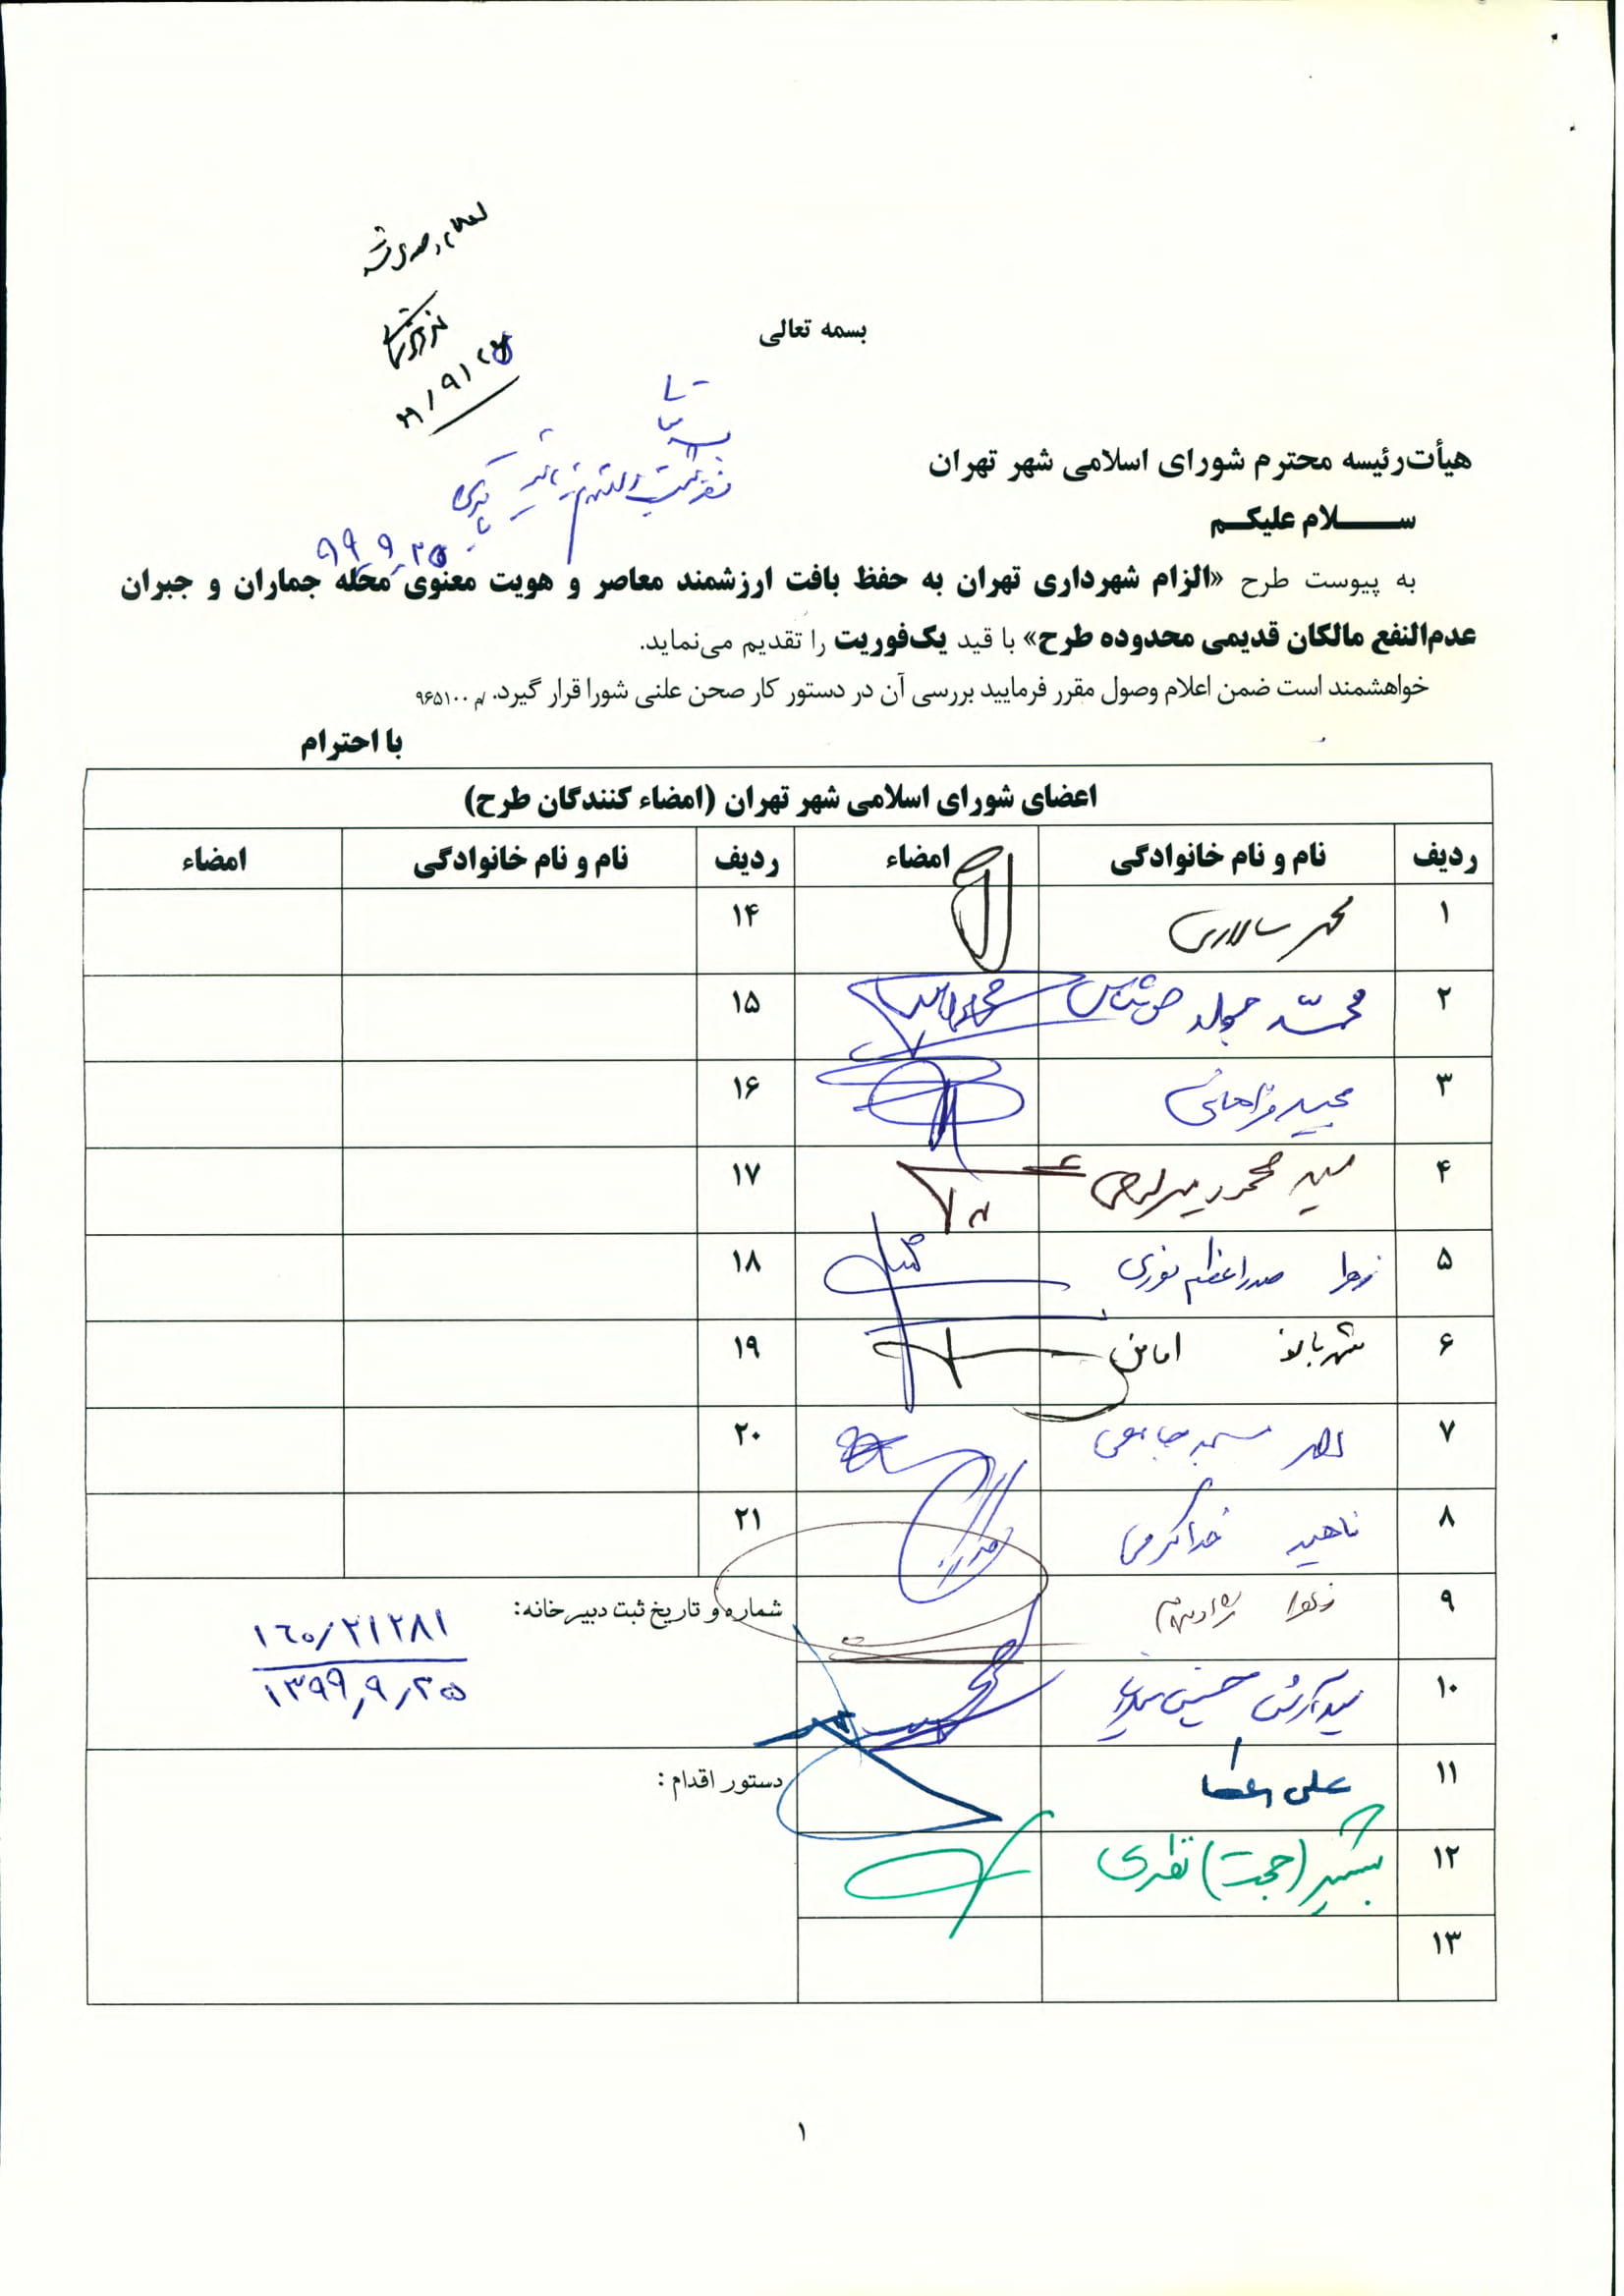 بسمه تعالی
هیأت‌رئیسه محترم شورای اسلامی شهر تهران
ســــلام علیکــم
به پیوست طرح «الزام شهرداری تهران به حفظ بافت ارزشمند معاصر و هویت معنوی محله جماران و جبران
عدم‌النفع مالکان قدیمی محدوده طرح» با قید یک‌فوریت را تقدیم می‌نماید.
خواهشمند است ضمن اعلام وصول مقرر فرمایید بررسی آن در دستور کار صحن علنی شورا قرار گیرد. /م ۹۶۵۱۰۰
۹۹٫۹٫۲۵
با احترام
اعضای شورای اسلامی شهر تهران (امضاء کنندگان طرح)
ردیف نام و نام خانوادگی امضاء ردیف نام و نام خانوادگی امضاء
۱ محمد سالاری ۱۴
۲ محمد جواد حق شناس ۱۵
۳ مجید فراهانی ۱۶
۴ سید محمود میرلوحی ۱۷
۵ زهرا صدراعظم نوری ۱۸
۶ شهربانو امانی ۱۹
۷ احمد مسجد جامعی ۲۰
۸ ناهید خداکرمی ۲۱
۹ زهرا نژادبهرام
شماره و تاریخ ثبت دبیرخانه:
۱۶۰/۲۱۲۸۱
۱۳۹۹٫۹٫۲۵
۱۰ سید آرش حسینی میلانی
۱۱ علی اعطا
دستور اقدام :
۱۲ بشیر (حجت) نظری
۱۳
۱